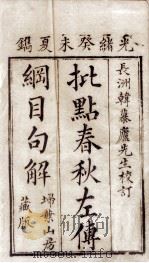 光緒癸未夏鐫
長洲韓慕廬先生校訂
批點春秋左傳
綱目句解
埽葉山房
藏版